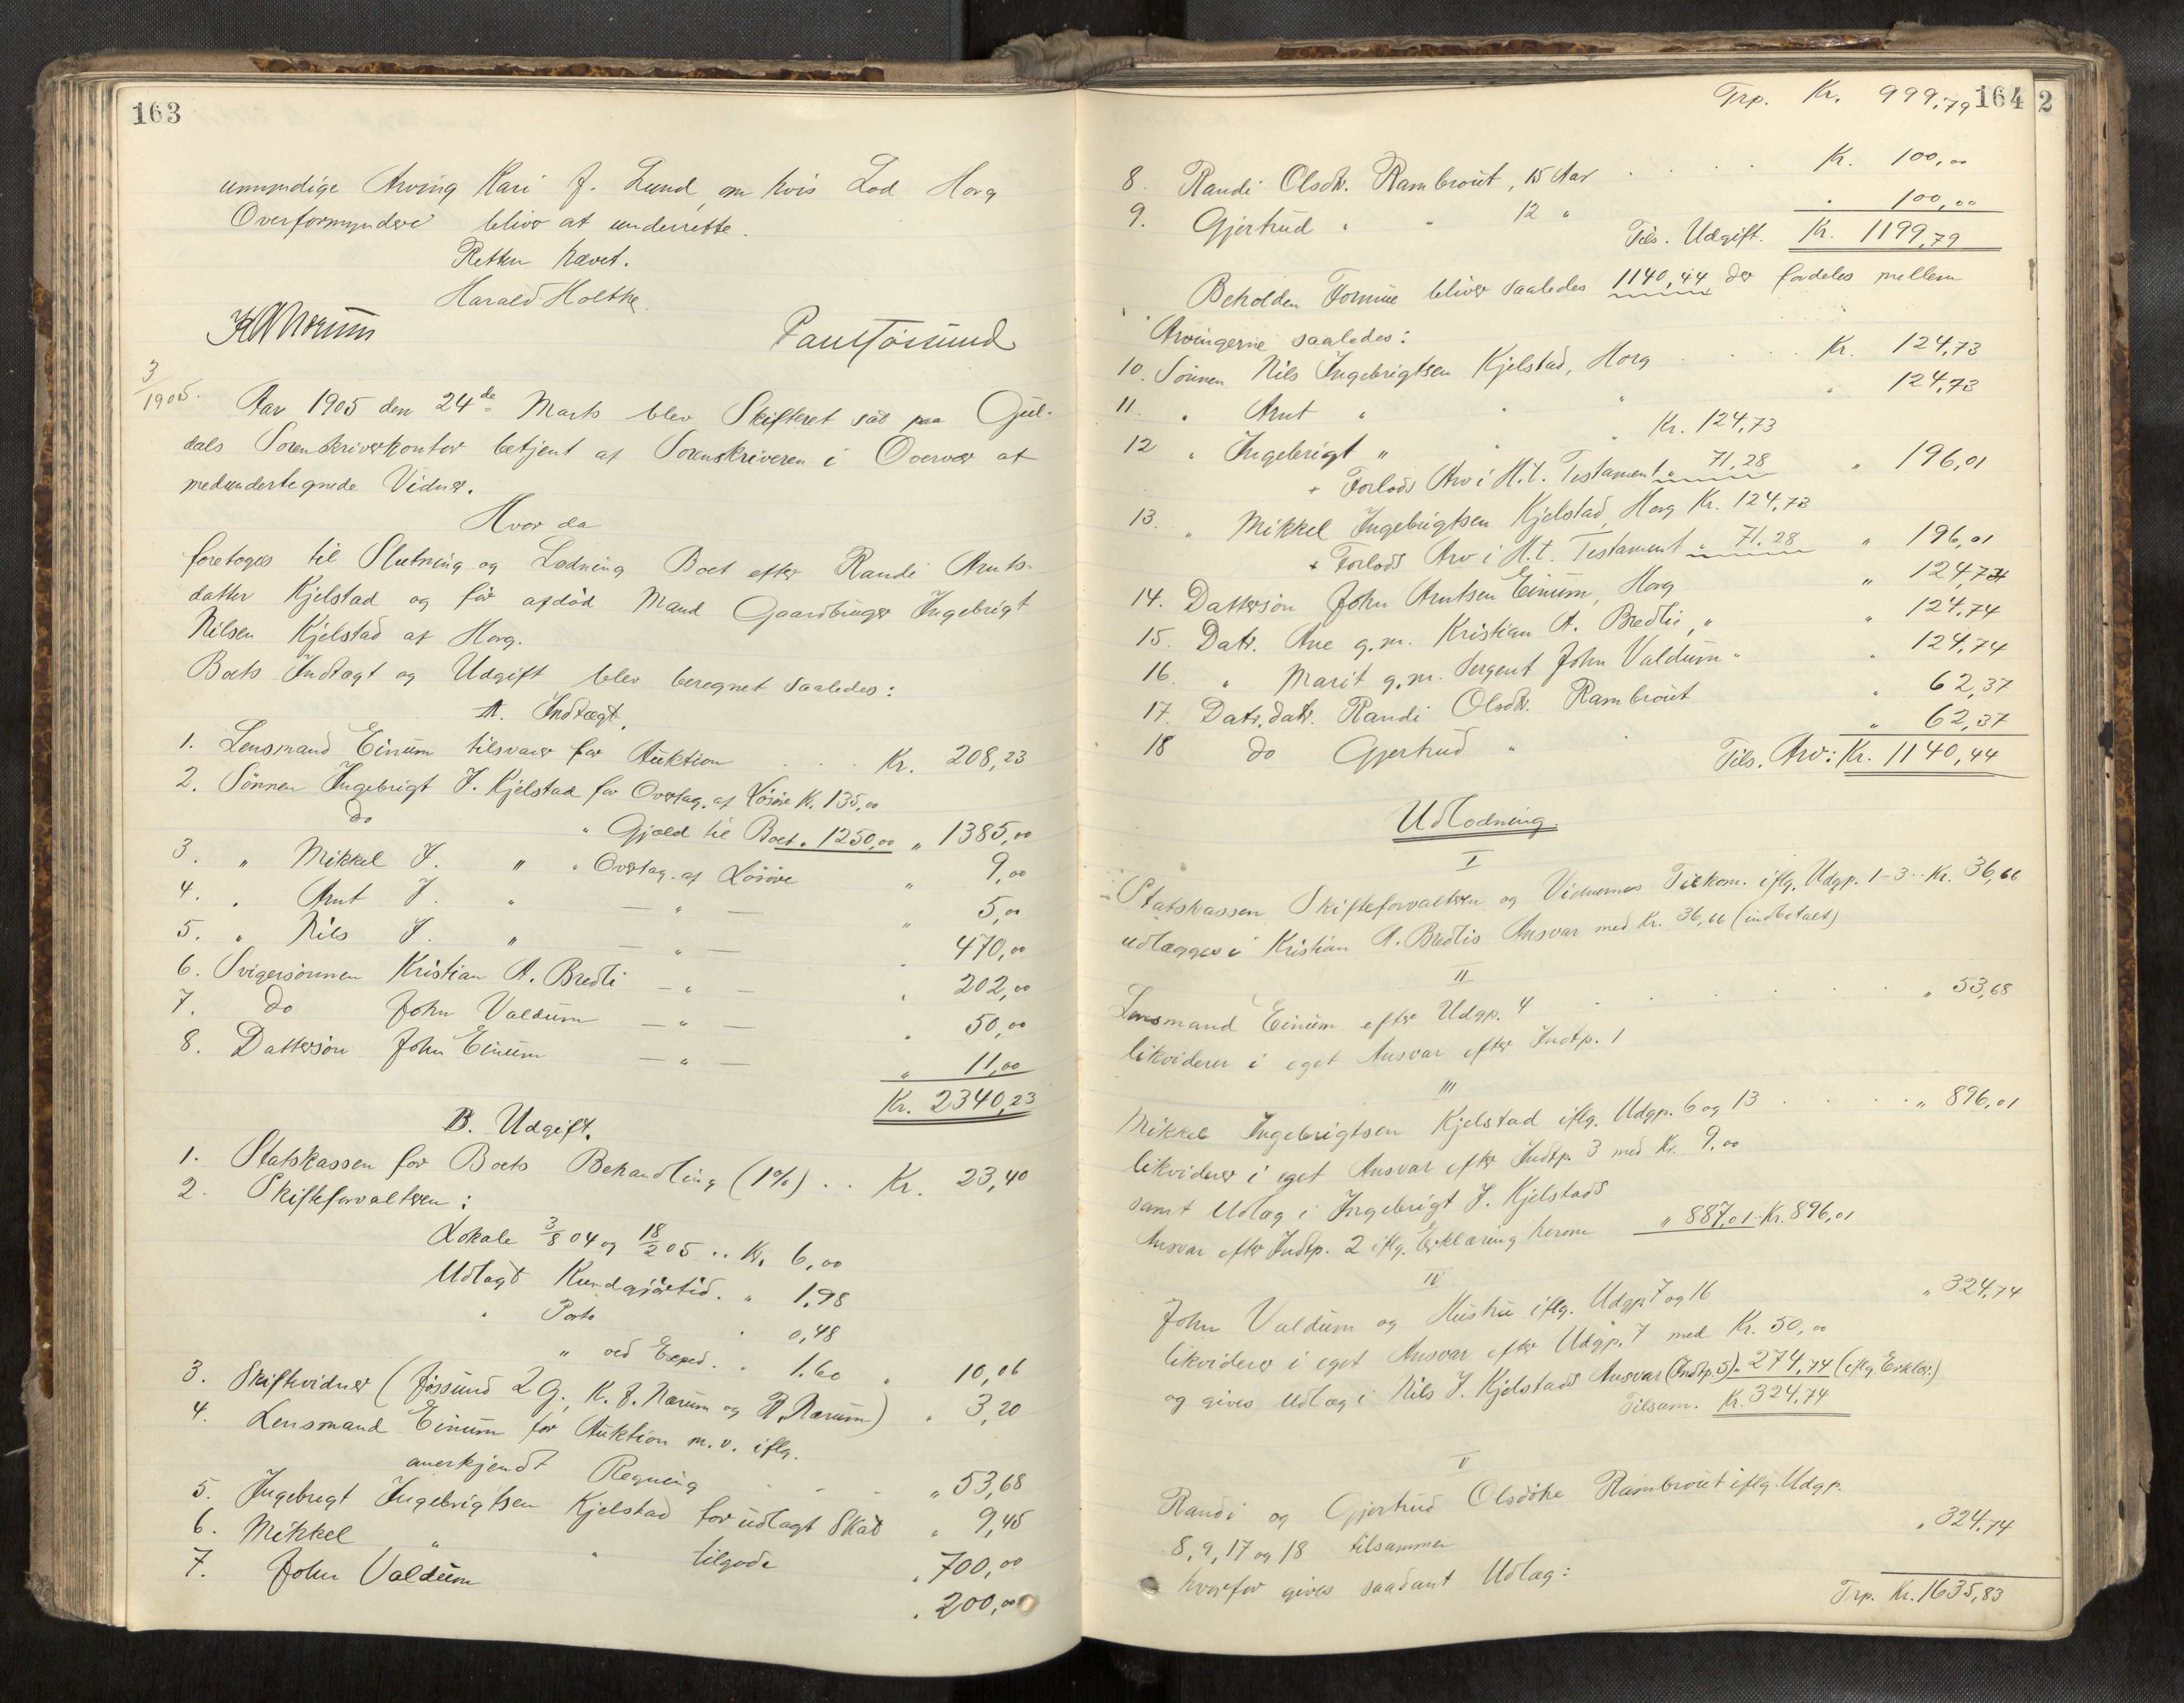 163
umyndige Arving Kari J. Lund, om hvis Lod Horg
Overformynderi bliver at underrette.
Retten hævet.
Harald Holtke.
3/1905.
Aar 1905 den 24de Marts blev Skifteret sat paa Gul-
dals Sorenskriverkontor betjent af Sorenskriveren i Overvær af
medundertegnede Vidner.
Hvor da
foretoges til Slutning og Lodning Boet efter Randi Arnts-
datter Kjelstad og før afdød Mand Gaardbruger Ingebrigt
Nilsen Kjelstad af Horg.
Boets Indtægt og Udgift blev beregnet saaledes:
A. Indtægt.
1. Lensmand Einum tilsvarer for Auktion . . . Kr. 208,23
2. Sønnen Ingebrigt I. Kjelstad for Overtag. af Løsøre Kr. 135,00
do " Gjæld til Boet " 1250,00 " 1385,00
3. " Mikkel I. " " Overtag. af Løsøre " 9,00
4. " Arnt I. " — " — " 5,00
5. " Nils I. " — " — " 470,00
6. Svigersønnen Kristian A. Bredli — " — " 202,00
7. do John Valdum — " — " 50,00
8. Dattersøn John Einum — " — " 11,00
Kr. 2340,23
B. Udgift.
1. Statskassen for Boets Behandling (1%) . . Kr. 23,40
2. Skifteforvalteren:
Lokale 3/8 04 og 18/2 05 . . Kr. 6,00
Udlagt Kundgjørtid. " 1,98
" Porto " 0,48
" ved Exped. . " 1.60 " 10,06
3. Skiftevidner (Jøssund 2 G., K. J. Nærum og P. Nærum) " 3,20
4. Lensmand Einum for Auktion m.v. iflg.
anerkjendt Regning . . . " 53,68
5. Ingebrigt Ingebrigtsen Kjelstad for udlagt Skat " 9,45
6. Mikkel " " tilgode " 700,00
7. John Valdum " 200,00
164
2
Trp. Kr. 999,79
8. Randi Olsdtr. Rambrout, 15 Aar . . . . Kr. 100,00
9. Gjertrud " " 12 " " 100,00
Tils. Udgift. Kr. 1199,79
Beholden Formue bliver saaledes 1140,44, der fordeles mellem
Arvingerne saaledes:
10. Sønnen Nils Ingebrigtsen Kjelstad, Horg . . . . Kr. 124,73
11. " Arnt " " " " 124,73
12 " Ingebrigt " " " Kr. 124,73
+ Forlods Arv i H.t. Testament " 71,28 " 196,01
13. " Mikkel Ingebrigtsen Kjelstad, Horg Kr. 124,73
+ Forlods Arv i H.t. Testament " 71.28 " 196,01
14. Dattersøn John Arntsen Einum, Horg " 124,74
15. Datr. Ane g.m. Kristian A. Bredli, " " 124,74
16. " Marit g.m. Sergent John Valdum " " 124,74
17. Datr.datr. Randi Olsdtr. Rambrout " 62,37
18 do Gjertrud " " " 62,37
Tils. Arv: Kr. 1140,44
Udlodning.
I
Statskassen Skifteforvalteren og Vidnernes Tilkom. iflg. Udgp. 1-3 . . Kr. 36,66
udlægges i Kristian A. Bredlis Ansvar med Kr. 36,66 (indbetalt)
II
Lensmand Einum efter Udgp. 4 . . . . . " 53,68
likviderer i eget Ansvar efter Indtp. 1
III
Mikkel Ingebrigtsen Kjelstad iflg. Udgp. 6 og 13 . . . " 896,01
likviderer i eget Ansvar efter Indtp. 3 med Kr. 9,00
samt Udlæg i Ingebrigt I. Kjelstads
Ansvar efter Indtp. 2 iflg. Erklæring herom " 887,01 Kr. 896,01
IV
John Valdum og Hustru iflg. Udgp. 7 og 16 " 324,74
likviderer i eget Ansvar efter Udgp. 7 med Kr. 50,00
og gives Udlæg i Nils I. Kjelstads Ansvar (Indtp. 5) " 274,74 (iflg. Erklær.)
Tilsam. Kr. 324,74
V
Randi og Gjertrud Olsdøtre Rambrout iflg. Udgp.
8, 9, 17 og 18 tilsammen " 324,74
hvorfor gives saadant Udlæg:
Trp. Kr. 1635,83